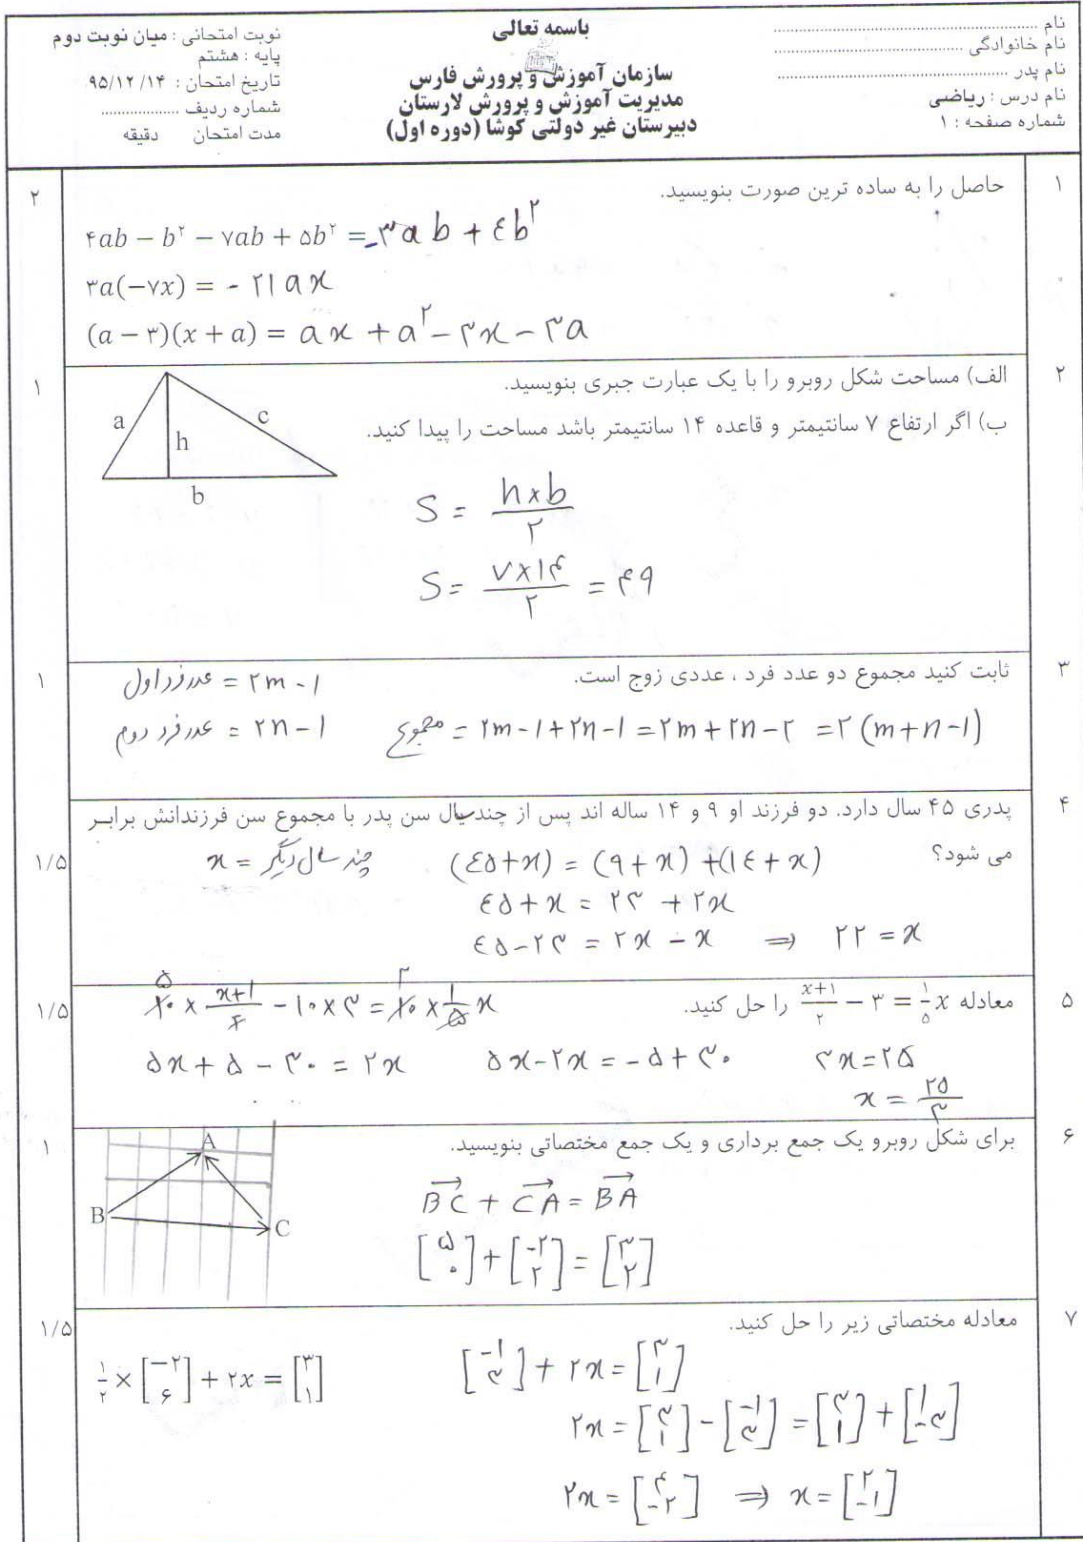 باسمه تعالی
نام ........................................
نام خانوادگی ........................................
نام پدر ........................................
نام درس : ریاضی
شماره صفحه : ۱
سازمان آموزش و پرورش فارس
مدیریت آموزش و پرورش لارستان
دبیرستان غیر دولتی کوشا (دوره اول)
نوبت امتحانی : میان نوبت دوم
پایه : هشتم
تاریخ امتحان : ۹۵/۱۲/۱۴
شماره ردیف ..................
مدت امتحان دقیقه
۱ حاصل را به ساده ترین صورت بنویسید. ۲
۴ab − b² − ۷ab + ۵b² = -۳ab + ٤b²
۳a(−۷x) = - ۲۱ax
(a − ۳)(x + a) = ax + a² - ۳x - ۳a
۲ الف) مساحت شکل روبرو را با یک عبارت جبری بنویسید. ۱
ب) اگر ارتفاع ۷ سانتیمتر و قاعده ۱۴ سانتیمتر باشد مساحت را پیدا کنید.
a h c
b
S = h×b / ۲
S = ۷×۱۴ / ۲ = ۴۹
۳ ثابت کنید مجموع دو عدد فرد ، عددی زوج است. ۱
عدد فرد اول = ۲m - ۱
عدد فرد دوم = ۲n - ۱
مجموع = ۲m - ۱ + ۲n - ۱ = ۲m + ۲n - ۲ = ۲(m+n-۱)
۴ پدری ۴۵ سال دارد. دو فرزند او ۹ و ۱۴ ساله اند پس از چند سال سن پدر با مجموع سن فرزندانش برابر
می شود؟ ۱/۵
چند سال دیگر = x
(٤۵+x) = (۹+x) + (۱٤+x)
٤۵+x = ۲۳ + ۲x
٤۵-۲۳ = ۲x - x ⇒ ۲۲ = x
۵ معادله (x+۱)/۲ − ۳ = ۱/۵ x را حل کنید. ۱/۵
۱۰ × (x+۱)/۲ - ۱۰×۳ = ۱۰ × ۱/۵ x
۵ ۲
۵x + ۵ - ۳۰ = ۲x
۵x - ۲x = -۵ + ۳۰
۳x = ۲۵
x = ۲۵/۳
۶ برای شکل روبرو یک جمع برداری و یک جمع مختصاتی بنویسید. ۱
A
B
C
BC + CA = BA
[۵ ۰] + [-۲ ۲] = [۳ ۲]
۷ معادله مختصاتی زیر را حل کنید. ۱/۵
۱/۲ × [−۲ ۶] + ۲x = [۳ ۱]
[-۱ ۳] + ۲x = [۳ ۱]
۲x = [۳ ۱] - [-۱ ۳] = [۳ ۱] + [۱ -۳]
۲x = [۴ -۲] ⇒ x = [۲ -۱]